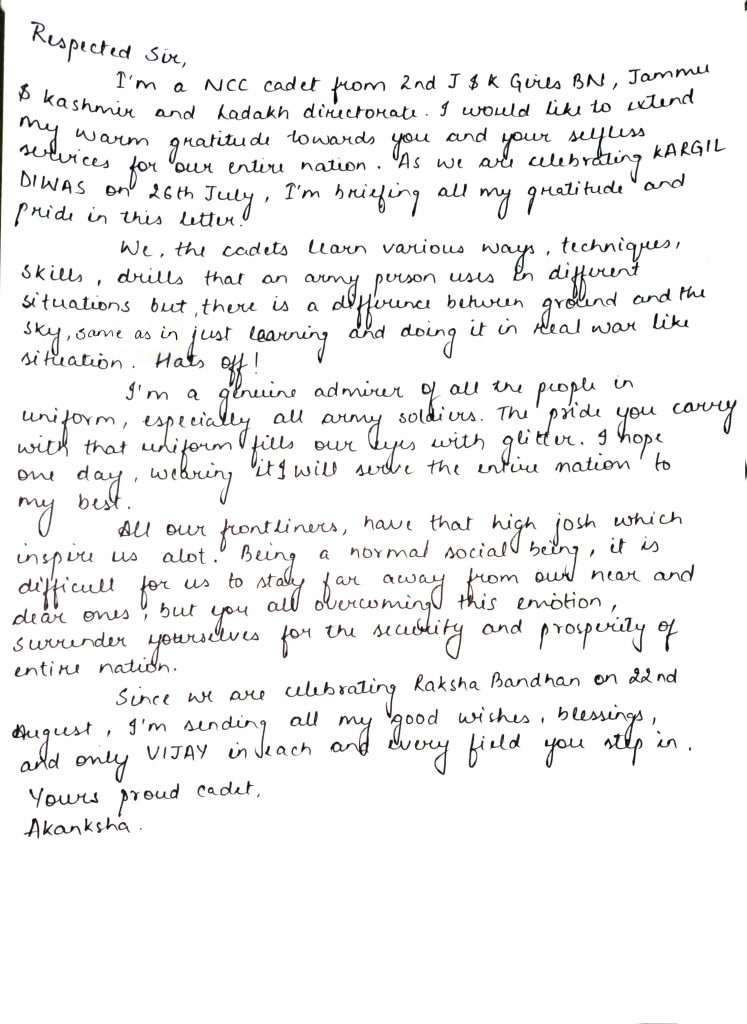 Respected Sir,
I'm a NCC cadet from 2nd J & K Girls BN, Jammu
& Kashmir and Ladakh directorate. I would like to extend
my warm gratitude towards you and your selfless
services for our entire nation. As we are celebrating KARGIL
DIWAS on 26th July, I'm briefing all my gratitude and
pride in this letter.
We, the cadets learn various ways, techniques,
skills, drills that an army person uses in different
situations but, there is a difference between ground and the
sky, same as in just learning and doing it in real war like
situation. Hats off!
I'm a genuine admirer of all the people in
uniform, especially all army soldiers. The pride you carry
with that uniform fills our eyes with glitter. I hope
one day, wearing it I will serve the entire nation to
my best.
All our frontliners, have that high josh which
inspire us alot. Being a normal social being, it is
difficult for us to stay far away from our near and
dear ones, but you all overcoming this emotion,
surrender yourselves for the security and prosperity of
entire nation.
Since we are celebrating Raksha Bandhan on 22nd
August, I'm sending all my good wishes, blessings,
and only VIJAY in each and every field you step in.
Yours proud cadet,
Akanksha.